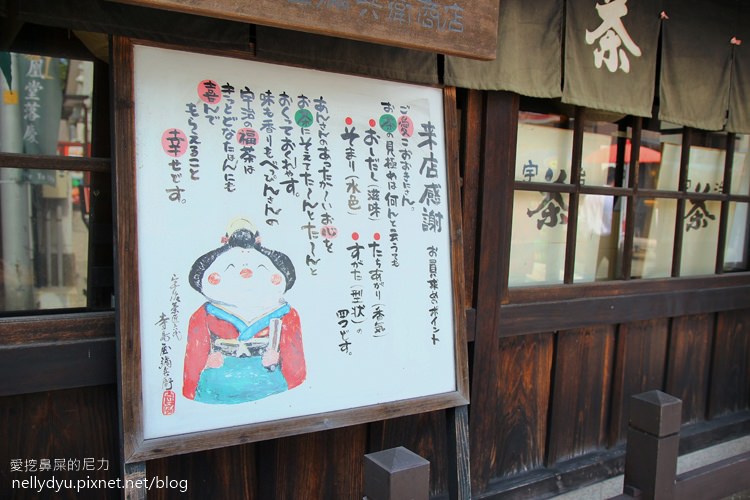 来店感謝
お買求めポイント
ご愛こおおきにさん。
お茶の見極めは何んと云うても
●おしだし(滋味) ●たちあがり(香気)
●そまり(水色) ●すがた(型状)の
四つです。
あんさんのあったか〜いお心を
お茶にそえてた〜んとた〜んと
おくっておくれやす。
味も香りもべっぴんさんの
宇治の福茶は
きっとどなたはんにも
喜んで
もらえること
幸せです。
茶
宇治
茶
宇治
茶
愛挖鼻屎的尼力
nellydyu.pixnet.net/blog